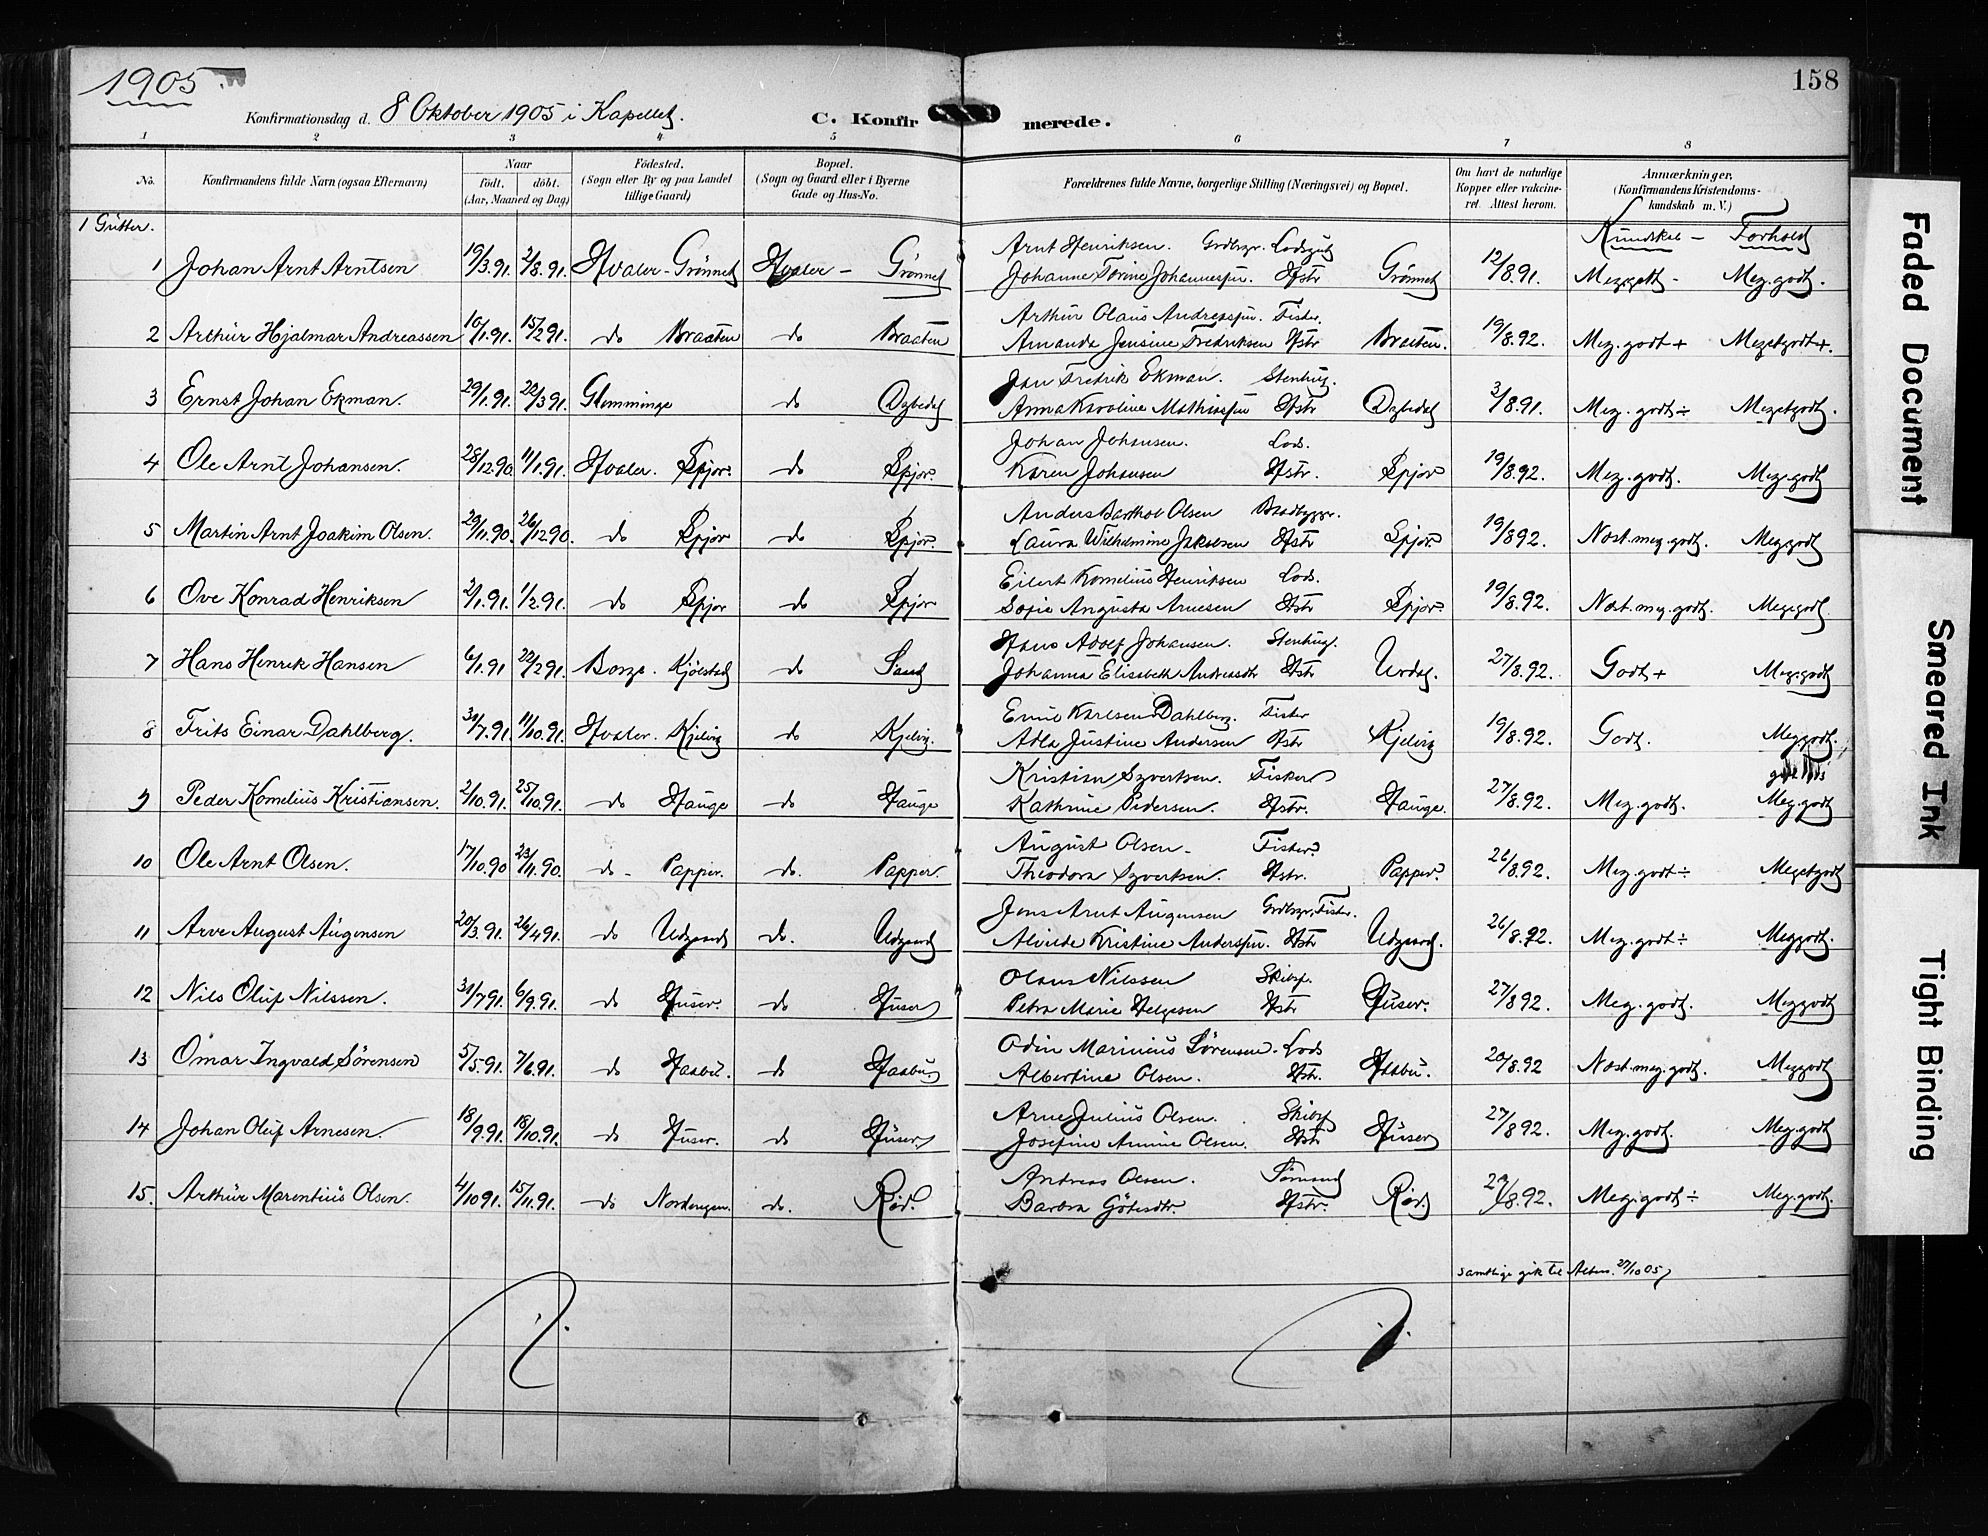 1905
158
Konfirmationsdag d. 8 Oktober 1905 i Kapellet.
C. Konfirmerede.
1 2 3 4 5 6 7 8
No.
Konfirmandens fulde Navn (ogsaa Efternavn)
Naar
födt. döbt.
(Aar, Maaned og Dag)
Födested.
(Sogn eller By og paa Landet
tillige Gaard)
Bopæl.
(Sogn og Gaard eller i Byerne
Gade og Hus-No.
Forældrenes fulde Navne, borgerlige Stilling (Næringsvei) og Bopæl.
Om havt de naturlige
Kopper eller vakcine-
ret. Attest herom.
Anmærkninger,
(Konfirmandens Kristendoms-
kundskab m. V.)
1 Gutter.
Kundskab - Forhold
Arnt Henriksen.
1 Johan Arnt Arntsen 19/3.91. 2/8.91. Hvaler - Grönnet Hvaler - Grönnet Johanne Torine Johannessen. Hstr Grönnet 12/8.91. Meg. godt - Meg. godt.
Arthur Olaus Andreassen. Fisker.
2 Arthur Hjalmar Andreassen 10/1.91. 15/2.91. do Braaten do Braaten Amanda Jensine Fredriksen Hstr Braaten. 19/8.92. Meg. godt + Meget godt +.
Jon Fredrik Ekman. Stenhug.
3 Ernst Johan Ekman. 29/1.91. 22/3.91. Glemminge do Dybedal Anna Karoline Mathissen Hstr Dybedal 3/8.91. Meg. godt ÷ Meget godt.
Johan Johansen. Lods.
4 Ole Arnt Johansen. 28/12.90. 11/1.91. Hvaler. Spjør. do Spjør. Karen Johansen Hstr. Spjør 19/8.92. Meg. godt. Meg. godt
Anders Barthol Olsen Baadbygger.
5 Martin Arnt Joakim Olsen. 29/11.90. 26/12 90. do Spjør do Spjør. Laura Wilhelmine Jakobsen Hstr Spjør. 19/8 92. Nost. meg. godt. Meg godt
Eilert Kornelius Henriksen Lods.
6 Ove Konrad Henriksen 2/1.91. 1/2.91. do Spjør do Spjør Sofie Augusta Arnesen Hstr Spjør 19/8.92. Nost. meg. godt. Meg. godt
Hans Adolf Johansen. Stenhug.
7 Hans Henrik Hansen 6/1.91 22/2 91. Borge. Kjölstad do Sand Johanna Elisabeth Andreasdtr Hstr Urdal. 27/8.92. Godt + Meg. godt
Emil Karlsen Dahlberg. Fisker
8 Frits Einar Dahlberg. 31/7.91. 11/10.91. Hvaler. Kjelvig do Kjelvig. Adla Justine Andersen Hstr Kjelvig 19/8.92. Godt. Meg godt.
Kristian Syvertsen. Fisker
9 Peder Kornelius Kristiansen. 2/10.91. 25/10.91. do Hauge do Hauge Kathrine Pedersen. Hstr. Hauge. 27/8.92. Meg. godt. Meg. godt
August Olsen - Fisker.
10 Ole Arnt Olsen. 17/10.90 23/11.90. do - Papper. do. Papper. Theodora Syvertsen. Hstr. Papper. 26/8.92. Meg. godt ÷ Meget godt
Jens Arnt Augensen Fisker.
11 Arve August Augensen 20/3.91. 26/4 91. do Udgaard do. Udgaard Alvilde Kristine Anderssen. Hstr Udgaard. 26/8.92. Meg. godt ÷ Meg godt.
Olaus Nilssen Skibsf.
12 Nils Oluf Nilssen. 31/7 91. 6/9.91. do Huser. do Huser Petra Marie Helgesen Hstr Huser. 27/8 92. Meg. godt. Meg godt
Odin Marinius Sörensen. Lods
13 Omar Ingvald Sörensen 5/5.91. 7/6.91. do Haabu. do Haabu. Albertine Olsen. Hstr. Haabu. 20/8.92 Nost. meg. godt. Meg godt
Arne Julius Olsen. Skibsf
14 Johan Oluf Arnesen. 18/9.91. 18/10.91. do Huser. do Huser Josefine Amine Olsen. Hstr Huser 27/8 92. Meg. godt. Meg. godt
Andreas Olsen. Sömand
15. Arthur Marentius Olsen. 4/10 91. 15/11.91. do Nordengen. do. Röd. Barbra Götesdtr Hstr. Röd 8.92. Meg. godt ÷ Meg. godt.
samtlige gik til Alters. 29/10 05
Faded Document
Smeared Ink
Tight Binding